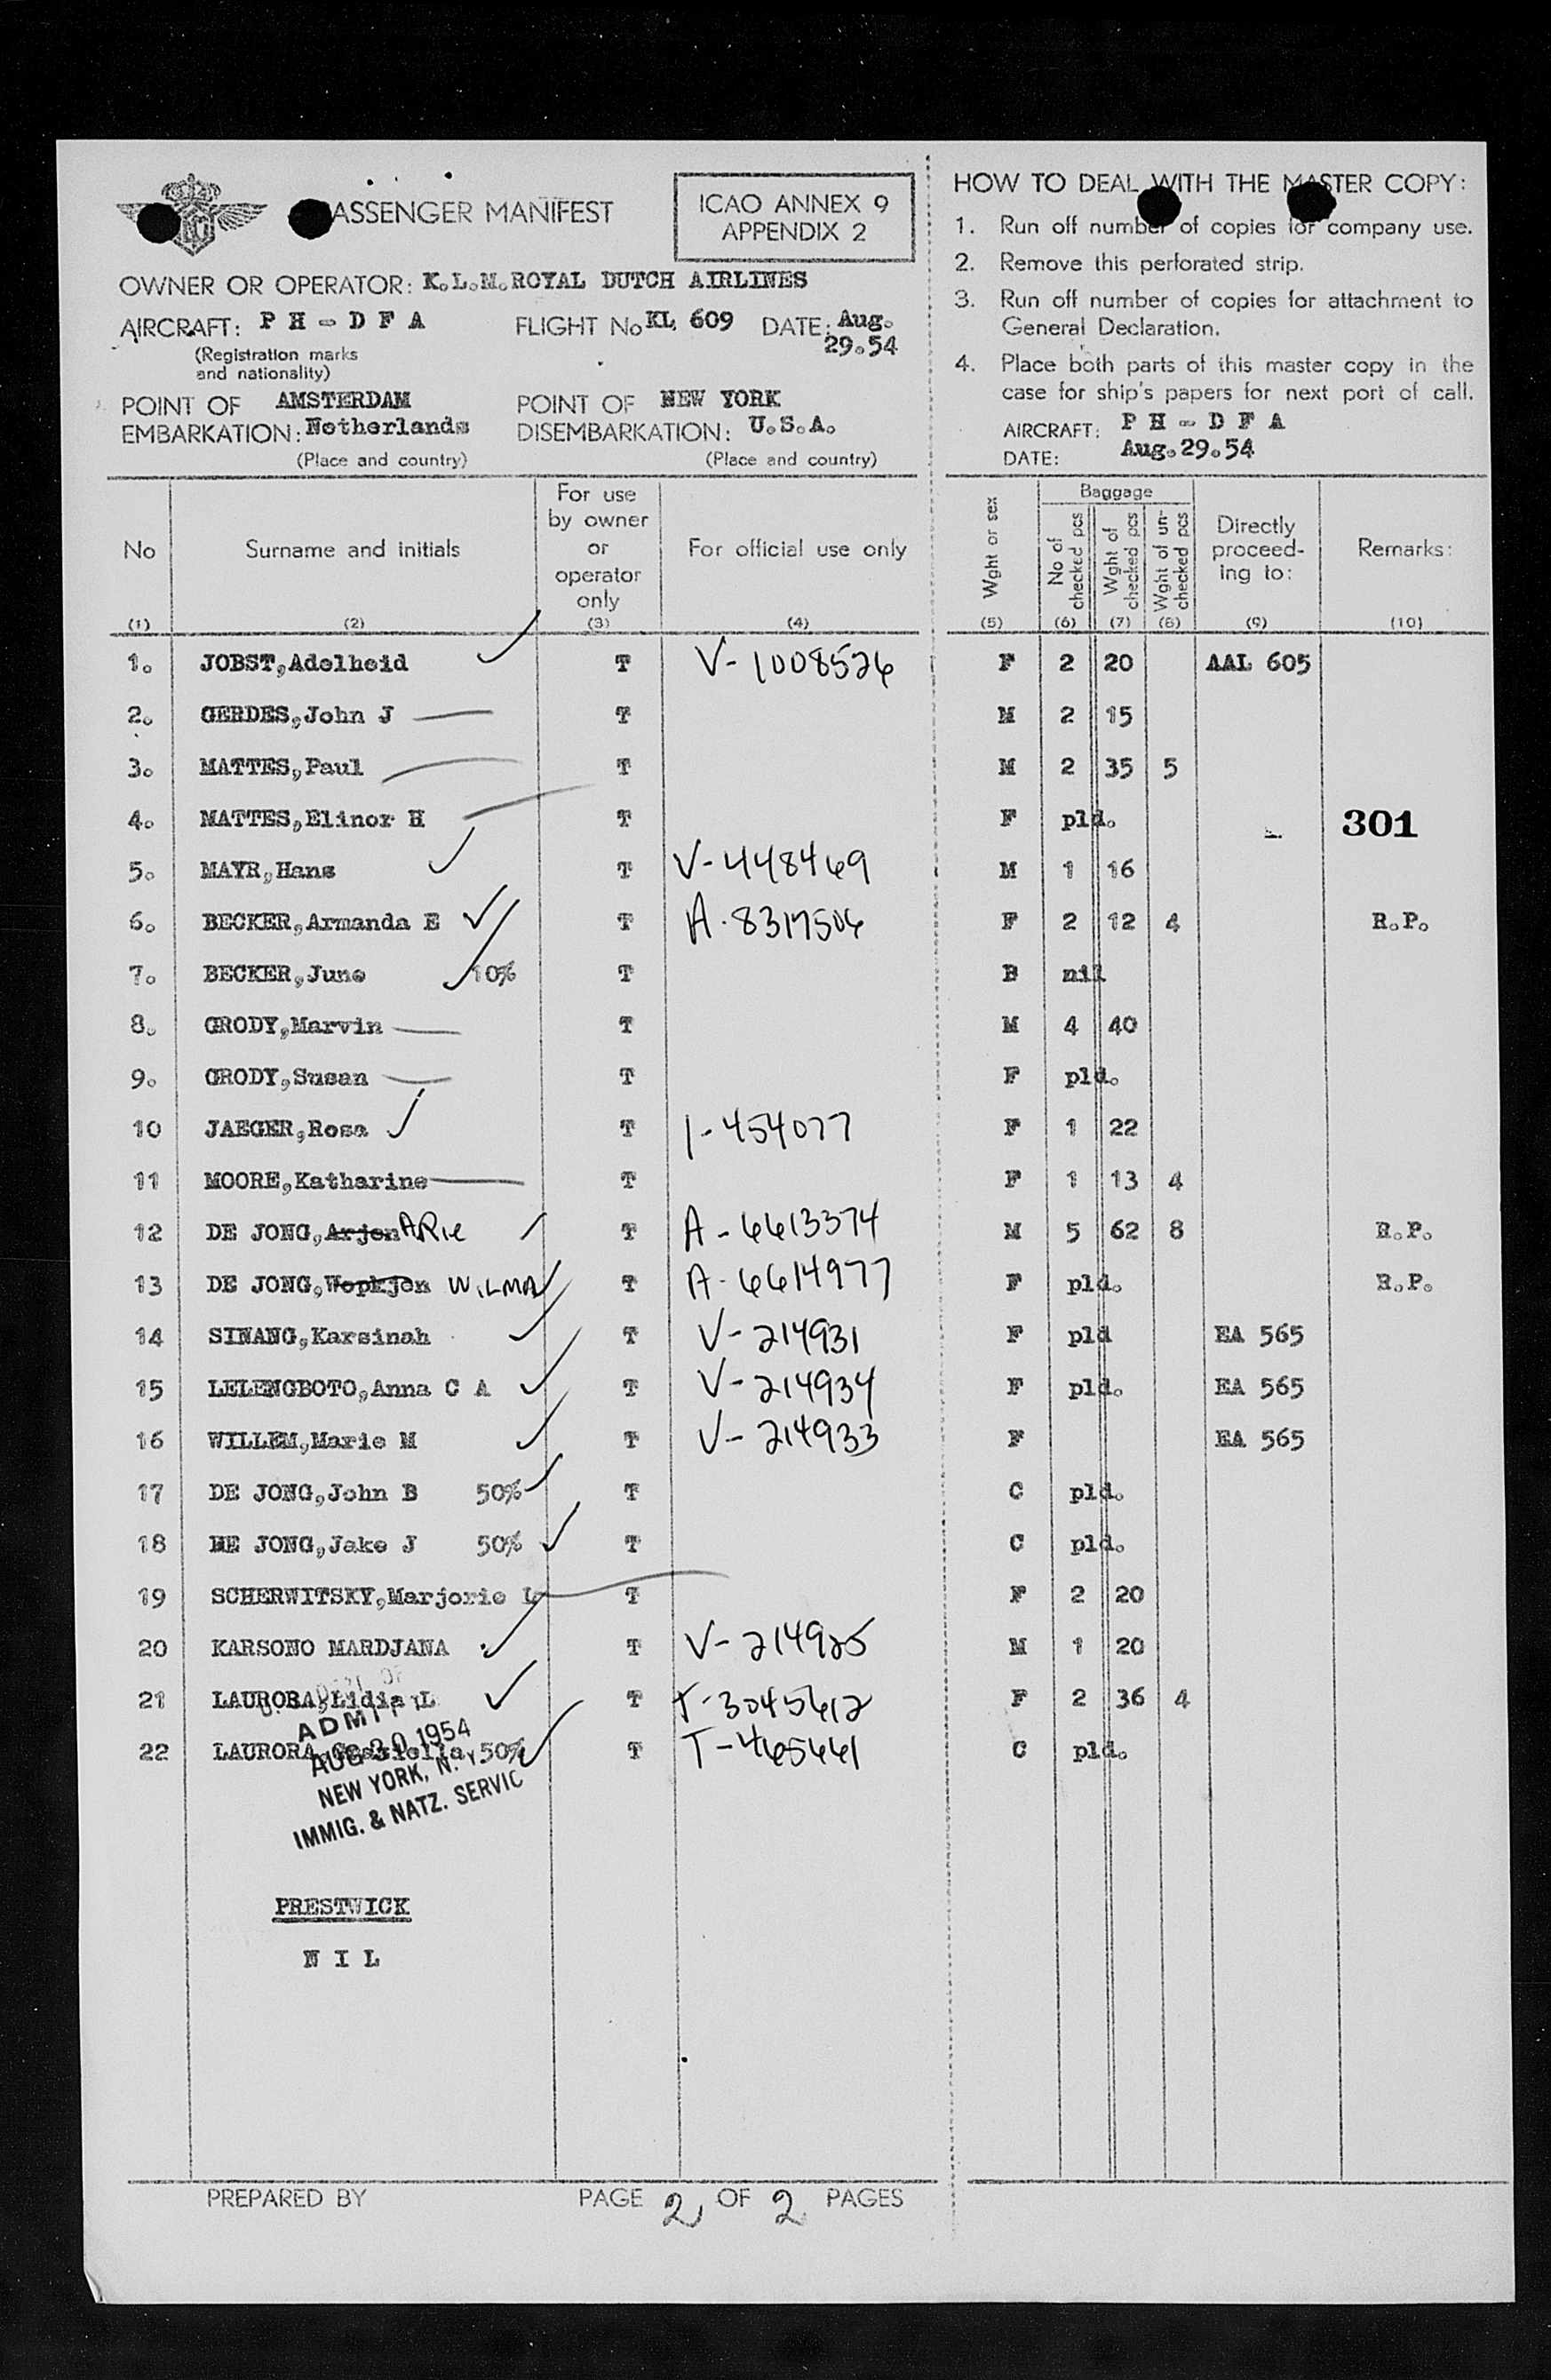 PASSENGER MANIFEST
ICAO ANNEX 9
APPENDIX 2
OWNER OR OPERATOR: K.L.M. ROYAL DUTCH AIRLINES
AIRCRAFT: P H - D F A FLIGHT No KL 609 DATE: Aug. 29.54
(Registration marks
and nationality)
POINT OF EMBARKATION: AMSTERDAM Netherlands
(Place and country)
POINT OF DISEMBARKATION: NEW YORK U.S.A.
(Place and country)
HOW TO DEAL WITH THE MASTER COPY:
1. Run off number of copies for company use.
2. Remove this perforated strip.
3. Run off number of copies for attachment to
General Declaration.
4. Place both parts of this master copy in the
case for ship's papers for next port of call.
AIRCRAFT: P H - D F A
DATE: Aug.29.54
No (1) Surname and initials (2) For use by owner or operator only (3) For official use only (4) Wght or sex (5) Baggage No of checked pcs (6) Wght of checked pcs (7) Wght of un-checked pcs (8) Directly proceed-ing to: (9) Remarks: (10)
1. JOBST,Adelheid T V-1008526 F 2 20 AAL 605
2. GERDES,John J T M 2 15
3. MATTES,Paul T M 2 35 5
4. MATTES,Elinor H T F pld. 301
5. MAYR,Hans T V-448469 M 1 16
6. BECKER,Armanda E T A-8317506 F 2 12 4 R.P.
7. BECKER,June 10% T B nil
8. GRODY,Marvin T M 4 40
9. GRODY,Susan T F pld.
10 JAEGER,Rosa T 1-454077 F 1 22
11 MOORE,Katharine T F 1 13 4
12 DE JONG,Arjen ARie T A-6613374 M 5 62 8 R.P.
13 DE JONG,Wopkjen WiLMA T A-6614977 F pld. R.P.
14 SINANG,Karsinah T V-214931 F pld EA 565
15 LELENGBOTO,Anna C A T V-214934 F pld. EA 565
16 WILLEM,Marie M T V-214933 F EA 565
17 DE JONG,John B 50% T C pld.
18 DE JONG,Jake J 50% T C pld.
19 SCHERWITSKY,Marjorie L T F 2 20
20 KARSONO MARDJANA T V-214925 M 1 20
21 LAURORA,Lidia L T T-3045612 F 2 36 4
22 LAURORA, 50% T T-465661 C pld.
ADMITTED
AUG 30 1954
NEW YORK, N.Y.
IMMIG. & NATZ. SERVIC
PRESTWICK
N I L
PREPARED BY PAGE 2 OF 2 PAGES